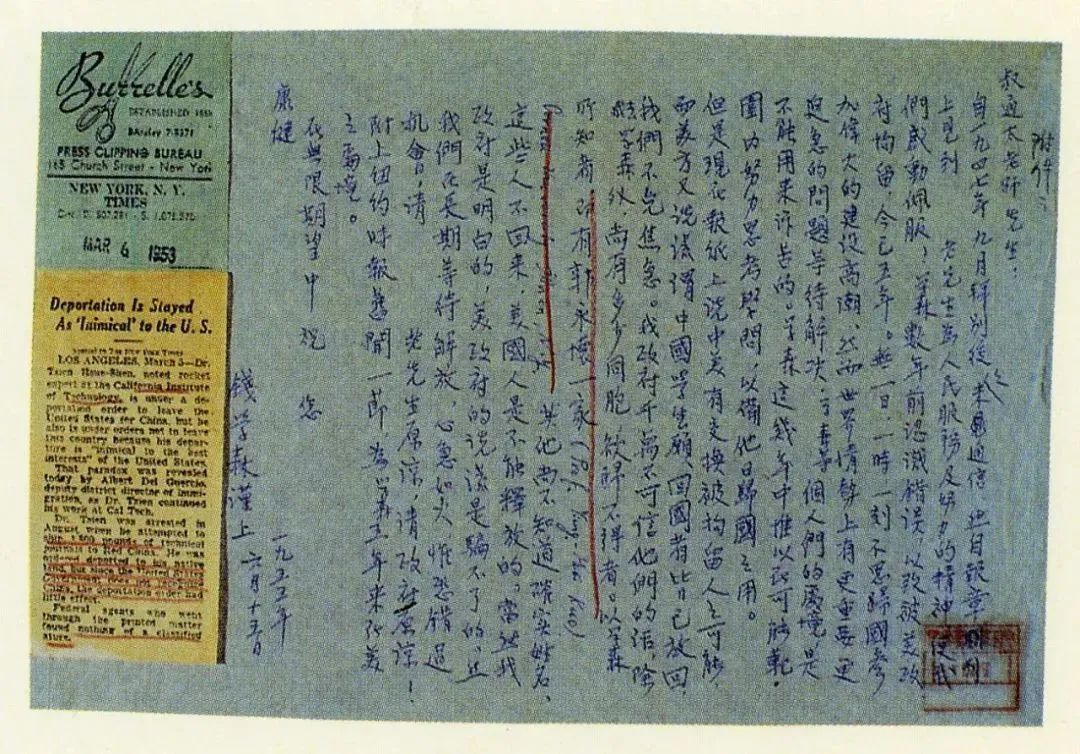 附件三
叔通太老师先生：
自一九四七年九月拜别後久未通信，然自報章期刊
上見到　老先生為人民服務及努力的精神使我
們感動佩服！学森數年前認識錯误，以致被美政
府拘留，今已五年。無一日、一時、一刻不思歸國參
加偉大的建設高潮。然而世界情勢上有更重要更
迫急的問題等待解決，学森等個人們的處境是
不能用来诉苦的。学森這幾年中惟以在可能範
圍内努力思考學問，以備他日歸國之用。
但是現在報紙上說中美有交换被拘留人之可能，
而美方又说谎谓中國学生願回國者皆已放回，
我們不免焦急。我政府千萬不可信他們的话，除
学森外，尚有多少同胞，欲歸不得者。以学森
所知者，即有郭永懷一家（Prof. Yung-huai Kuo）
其他尚不知道確实姓名。
這些人不回来，美國人是不能釋放的。當然我
政府是明白的，美政府的说谎是騙不了的，然
我們在長期等待解放，心急如火，惟恐錯過
机會，请　老先生原凉，请政府原凉！
附上纽约時報舊聞一節，為学森五年来在美
之處境。
在無限期望中祝　您
康健
錢学森谨上
一九五五年
六月十五日
Burrelle's
ESTABLISHED 1888
BArclay 7-5371
PRESS CLIPPING BUREAU
165 Church Street - New York
NEW YORK, N. Y.
TIMES
MAR 6 1953
Deportation Is Stayed
As 'Inimical' to the U. S.
Special to The New York Times
LOS ANGELES, March 5—Dr.
Tsien Hsue-Shen, noted rocket
expert at the California Institute
of Technology, is under a de-
portation order to leave the
United States for China, but he
also is under orders not to leave
this country because his depar-
ture is "inimical to the best
interests" of the United States.
That paradox was revealed
today by Albert Del Guercio,
deputy district director of immi-
gration, as Dr. Tsien continued
his work at Cal Tech.
Dr. Tsien was arrested in
August when he attempted to
ship 1,800 pounds of technical
journals to Red China. He was
ordered deported to his native
land, but since the United States
Government does not recognize
China, the deportation order had
little effect.
Federal agents who went
through the printed matter
found nothing of a classified
nature.